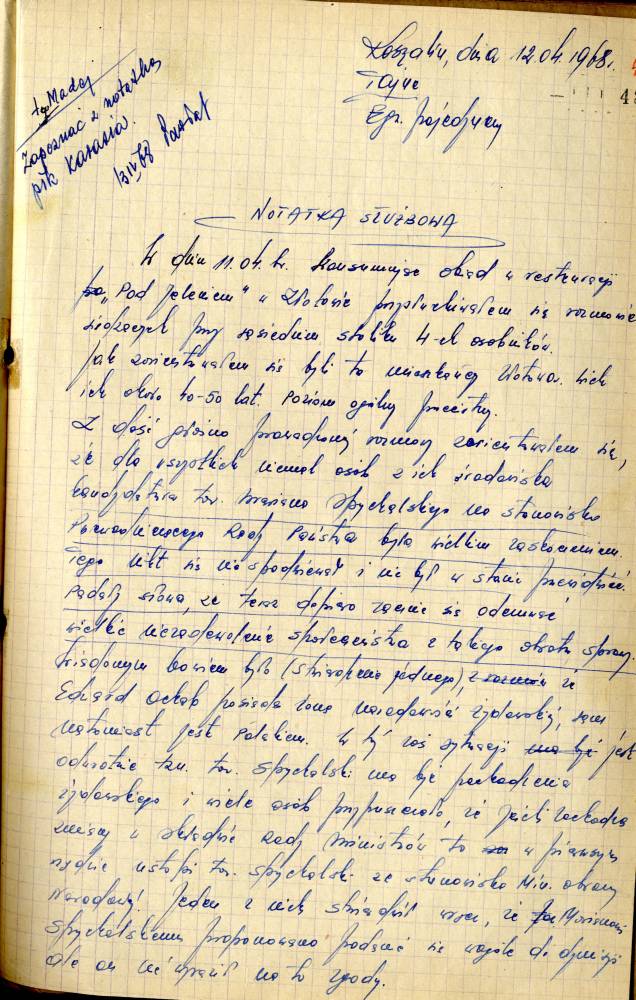 Koszalin, dnia 12.04.1968r.
Tajne
Egz. pojedynczy
4
tow. Madej
Zapoznać z notatką
płk Karasia.
13 IV 68
NOTATKA SŁUŻBOWA
W dniu 11.04. br. konsumując obiad w restauracji
"Pod Jeleniem" w Złotowie przysłuchiwałem się rozmowie
siedzących przy sąsiednim stoliku 4-ch osobników.
Jak zorientowałem się byli to mieszkańcy Złotowa. Wiek
ich około 40-50 lat. Poziom ogólny przeciętny.
Z dość głośno prowadzonej rozmowy zorientowałem się,
że dla wszystkich niemal osób z ich środowiska
kandydatura tow. Mariana Spychalskiego na stanowisko
Przewodniczącego Rady Państwa była wielkim zaskoczeniem.
Tego nikt się nie spodziewał i nie był w stanie przewidzieć.
Padały słowa, że teraz dopiero zacznie się odczuwać
wielkie niezadowolenie społeczeństwa z takiego obrotu sprawy.
Wiadomym bowiem było (stwierdzenie jednego), że
Edward Ochab posiada żonę narodowości żydowskiej, sam
natomiast jest Polakiem. W tej zaś sytuacji jest
odwrotnie tzn. tow. Spychalski ma być pochodzenia
żydowskiego i wiele osób przypuszczało, że jeżeli zachodzą
zmiany w składzie Rady Ministrów to w pierwszym
rzędzie ustąpi tow. Spychalski ze stanowiska Min. Obrony
Narodowej. Jeden z nich stwierdził wręcz, że Marianowi
Spychalskiemu proponowano podanie się w ogóle do dymisji
ale on nie wyraził na to zgody.